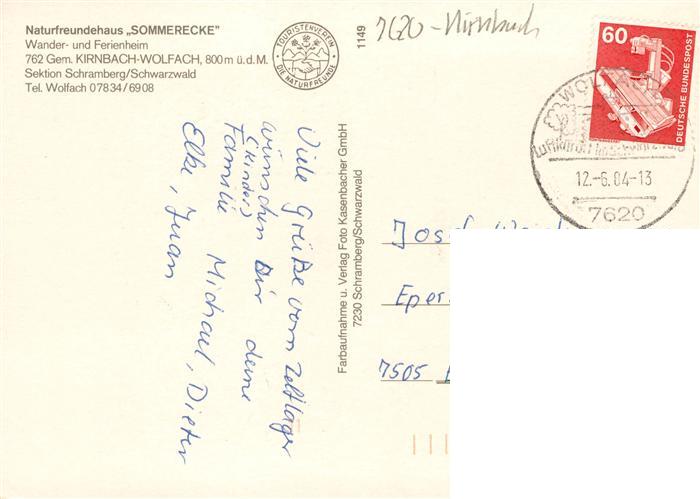 Naturfreundehaus „SOMMERECKE"
Wander- und Ferienheim
762 Gem. KIRNBACH-WOLFACH, 800 m ü. d. M.
Sektion Schramberg/Schwarzwald
Tel. Wolfach 07834/6908
TOURISTENVEREIN
DIE NATURFREUNDE
1149
7620 - Kirnbach
60
DEUTSCHE BUNDESPOST
WOLFACH
12.-6.84-13
7620
Viele Grüße vom Zeltlager
wünschen Dir deine
(Kinder)
Familie Michael, Dieter
Elke, Juan
Farbaufnahme u. Verlag Foto Kasenbacher GmbH
7230 Schramberg/Schwarzwald
Josef
Eper
7505